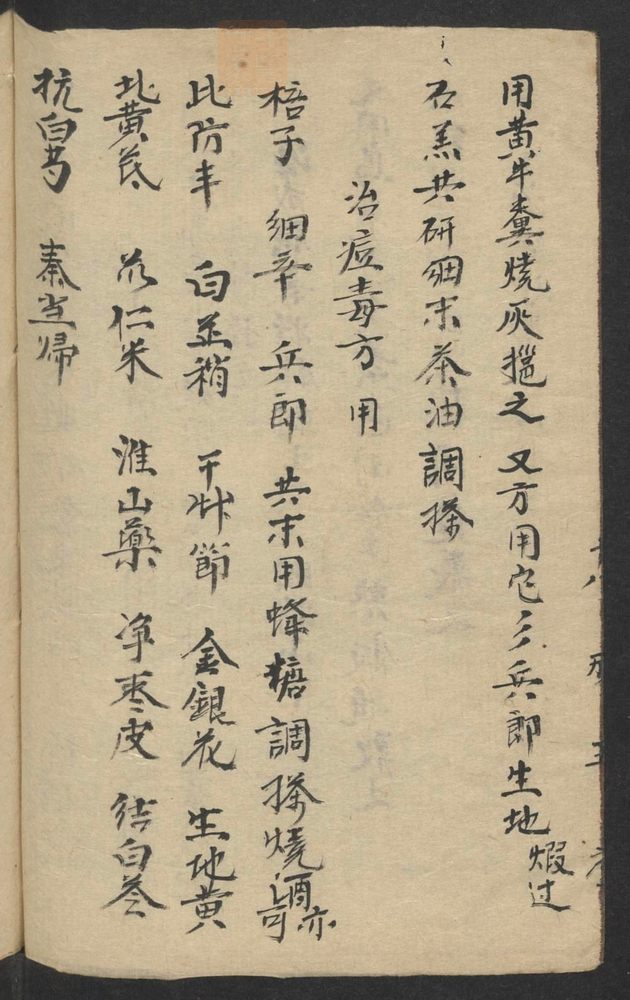 用黄牛糞燒灰搽之又方用 兵郎生地煆过
石羔共研細末茶油調搽
治痘毒方用
梧子 細辛 兵郎 共末用蜂糖調搽燒酒亦可
北防丰 白芷稍 干艸節 金銀花 生地黄
北黄芪 苡仁米 淮山藥 净枣皮 结白苓
抗白芍 秦当歸